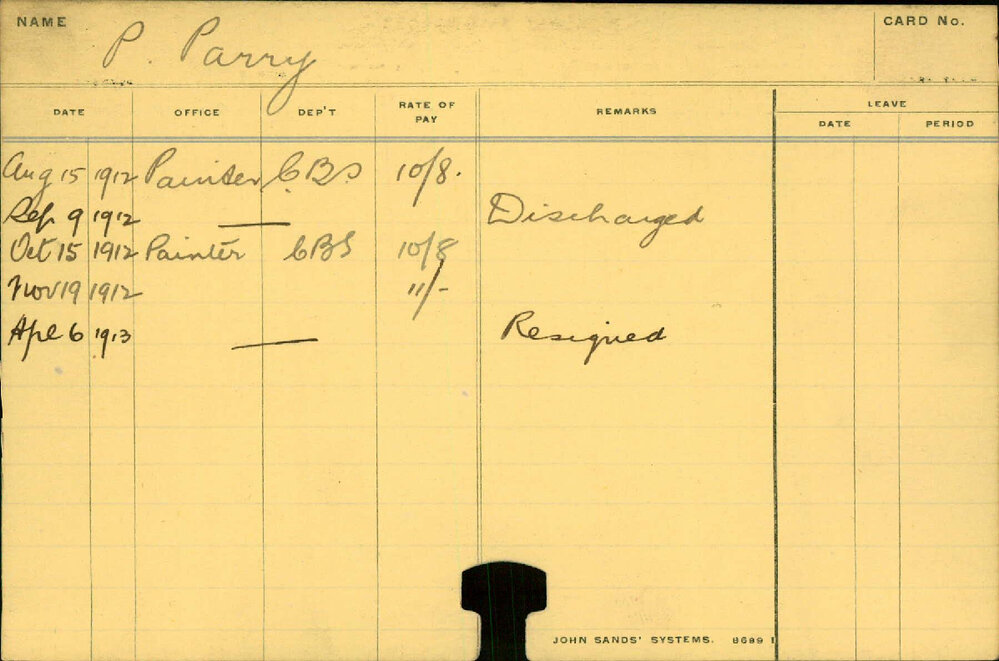 NAME P. Parry CARD No.
DATE OFFICE DEP'T RATE OF PAY REMARKS LEAVE
DATE PERIOD
Aug 15 1912 Painter C.B.S 10/8.
Sep 9 1912 — Discharged
Oct 15 1912 Painter CBS 10/8
Nov 19 1912 11/-
Apl 6 1913 — Resigned
JOHN SANDS' SYSTEMS. 8699